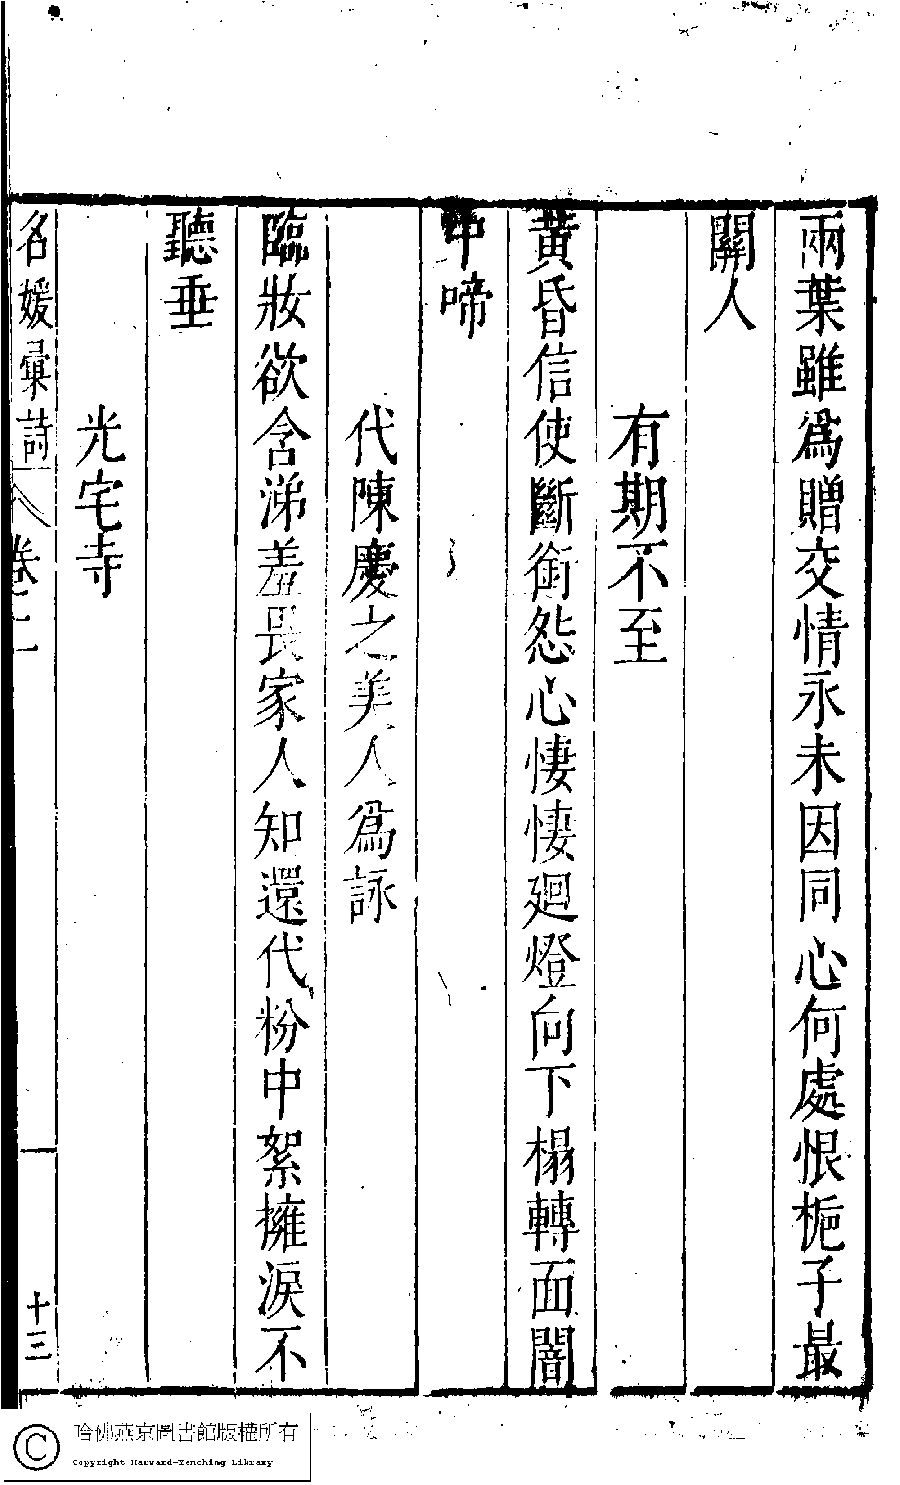 兩葉雖爲贈交情永未因同心何處恨梔子最
關人
有期不至
黃昏信使斷銜怨心悽悽廻燈向下榻轉面闇
中啼
代陳慶之美人爲詠
臨妝欲含涕羞畏家人知還代粉中絮擁淚不
聽垂
光宅寺
名媛彙詩
卷二
十三
哈佛燕京圖書館版權所有
Copyright Harvard-Yenching Library